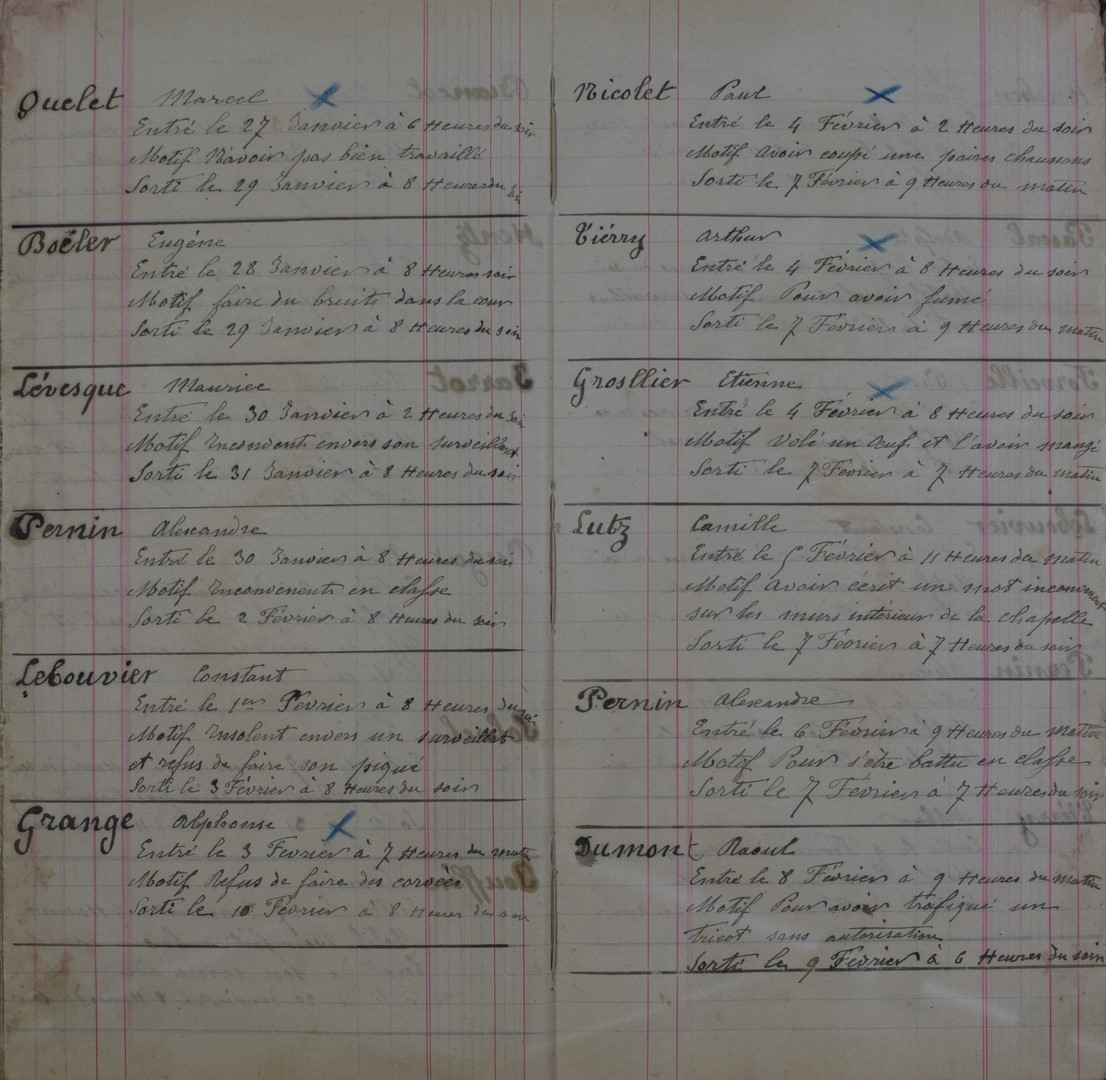 Quelet Marcel
Entré le 27 Janvier à 6 Heures du soir
Motif N'avoir pas bien travaillé
Sorti le 29 Janvier à 8 Heures du
Boëler Eugéne
Entré le 28 Janvier à 8 Heures soir
Motif faire du bruits dans la cour
Sorti le 29 Janvier à 8 Heures du soir
Lévesque Maurice
Entré le 30 Janvier à 2 Heures du soir
Motif Inconvent envers son surveillant
Sorti le 31 Janvier à 8 Heures du soir
Pernin Alexandre
Entré le 30 Janvier à 8 Heures du soir
Motif Inconvenents en classe
Sorti le 2 Février à 8 Heures du soir
Lebouvier Constant
Entré le 1er Fevrier à 8 Heures du soir
Motif Insolent envers un surveillant
et refus de faire son piqué
Sorti le 3 Février à 8 Heures du soir
Grange Alphonse
Entré le 3 Fevrier à 7 Heures du matin
Motif Refus de faire des corvées
Sorti le 10 Février à 8 Heures du soir
Nicolet Paul
Entré le 4 Février à 2 Heures du soir
Motif Avoir coupé une paires chaussons
Sorti le 7 Février à 9 Heures du matin
Tiérry Arthur
Entré le 4 Février à 8 Heures du soir
Motif Pour avoir fumé
Sorti le 7 Février à 9 Heures du matin
Grosllier Etienne
Entré le 4 Février à 8 Heures du soir
Motif volé un œuf et l'avoir mangé
Sorti le 7 Février à 7 Heures du matin
Lutz Camille
Entré le 5 Février à 11 Heures du matin
Motif Avoir écrit un mot inconvenent
sur les murs intérieur de la chapelle
Sorti le 7 Février à 7 Heures du soir
Pernin Alexandre
Entré le 6 Février à 9 Heures du matin
Motif Pour s'être battu en classe
Sorti le 7 Février à 7 Heures du soir
Dumont Raoul
Entré le 8 Février à 9 Heures du matin
Motif Pour avoir trafiqué un
tricot sans autorisation
Sorti le 9 Février à 6 Heures du soir